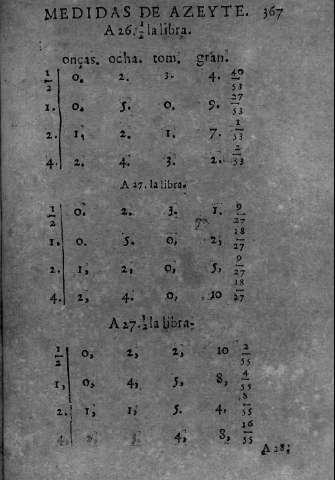 MEDIDAS DE AZEYTE. 367
A 26. 1/2 la libra.
onças. ocha. tom, gran.
1/2 0. 2. 3. 4. 40/53
1. 0. 5. 0. 9. 27/53
2. 1, 2. 1. 7. 1/53
4. 2, 4. 3. 2. 2/53
A 27. la libra.
1/2 0. 2. 3. 1. 9/27
1. 0. 5. 0, 2, 18/27
2. 1, 2, 0, 5, 9/27
4. 2, 4. 0, 10 18/27
A 27. 1/2 la libra.
1/2 0, 2, 2, 10 2/55
1, 0, 4, 5, 8, 4/55
2. 1, 1, 5. 4, 8/55
4. 4, 8, 16/55
A 28;